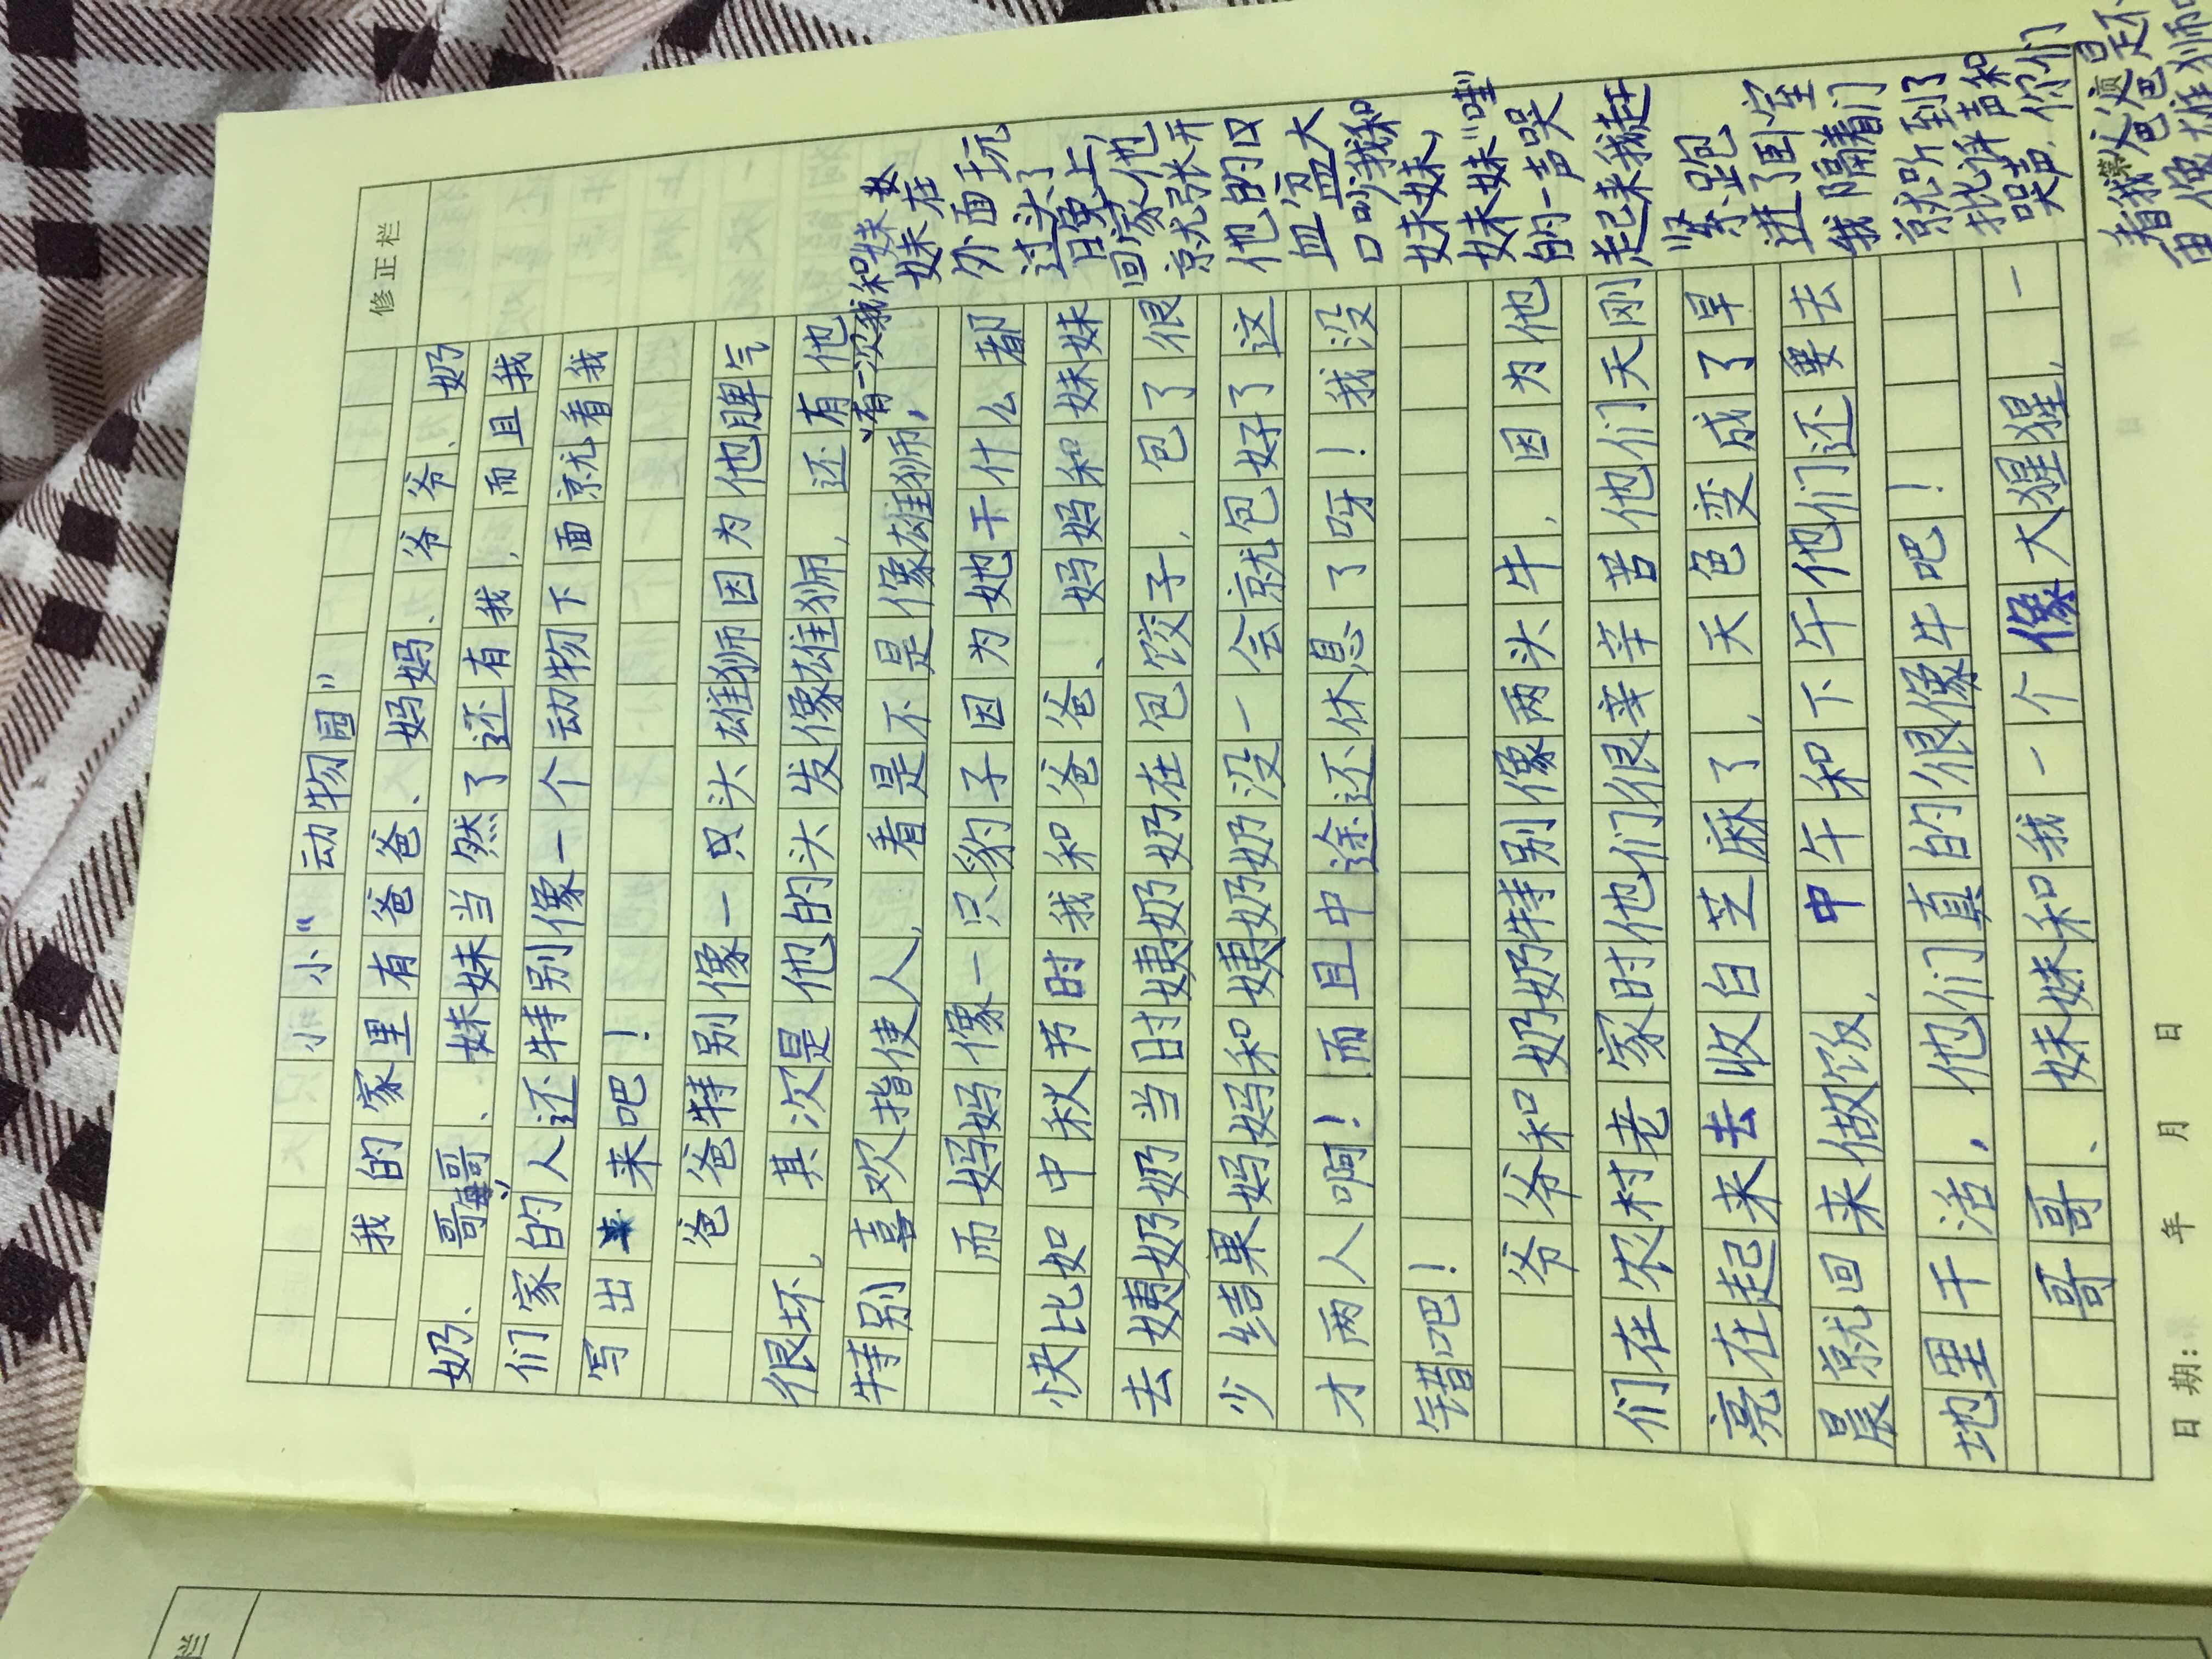 修正栏
小小“动物园”
我的家里有爸爸、妈妈、爷爷、奶
奶、哥哥、妹妹当然了还有我，而且我
们家的人还特别像一个动物下面就看我
写出来吧！
爸爸特别像一只头雄狮因为他脾气
很坏，其次是他的头发像雄狮，还有他
特别喜欢指使人，看是不是像雄狮，
而妈妈像一只豹子因为她干什么都
快比如中秋节时我和爸爸、妈妈和妹妹
去姨奶奶当时姨奶奶在包饺子，包了很
少结果妈妈和姨奶奶没一会就包好了这
才两人啊！而且中途还休息了呀！我没
错吧！
爷爷和奶奶特别像两头牛，因为他
们在农村老家时他们很辛辛苦他们天刚
亮在起来去收白芝麻了，天色变成了早
晨就回来做饭，中午和下午他们还要去
地里干活，他们真的很像牛吧！
哥哥、妹妹和我一个像大猩猩，一
有一次我和妹妹
妹在
外面玩
过头了
回家他
就张开
他的口
血盆大
口吵我和
妹妹，
妹妹“哇”
的一声哭
起来我赶
紧跑
进了卧室
我隔着门
就听到了
批评声和
哭声，你们
看我爸爸是不
日期： 年 月 日
栏